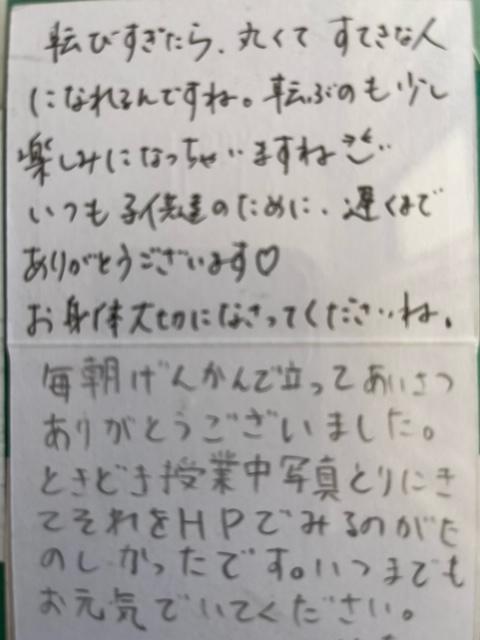 転びすぎたら、丸くて すてきな人
になれるんですね。転ぶのも少し
楽しみになっちゃいますね
いつも子供達のために、遅くまで
ありがとうございます♡
お身体大切になさってくださいね。
毎朝げんかんで立ってあいさつ
ありがとうございました。
ときどき授業中写真とりにき
てそれをHPでみるのがた
のしかったです。いつまでも
お元気でいてください。